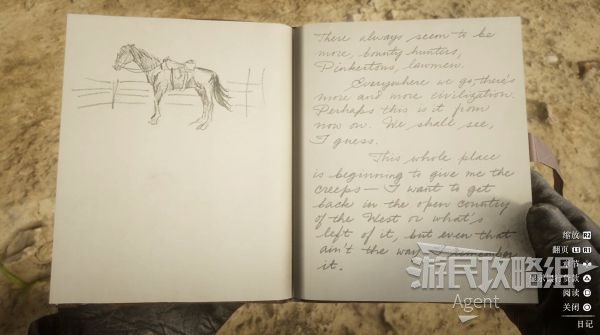 There always seem to be
more, bounty hunters,
Pinkertons, lawmen.
Everywhere we go, there's
more and more civilization.
Perhaps this is it from
now on. We shall see,
I guess.
This whole place
is beginning to give me the
creeps— I want to get
back in the open country
of the West or what's
left of it, but even that
ain't the way I remember
it.
游民攻略组
Agent
缩放 R2
翻页 L1 R1
阅读
关闭
日记